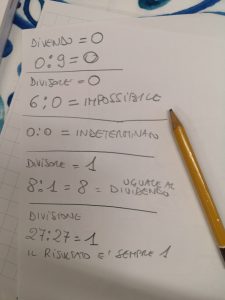 DIVENDO = 0
0:9 = 0
DIVISORE = 0
6:0 = IMPOSSIBILE
0:0 = INDETERMINATO
DIVISORE = 1
8:1 = 8 = UGUALE AL DIVIDENDO
DIVISIONE
27:27 = 1
IL RISULTATO E' SEMPRE 1